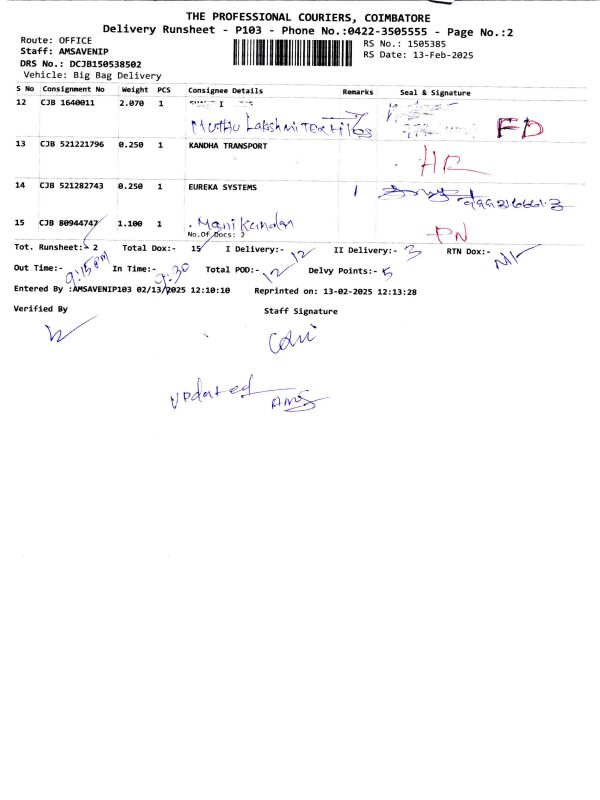 THE PROFESSIONAL COURIERS, COIMBATORE
Delivery Runsheet - P103 - Phone No.:0422-3505555 - Page No.:2
Route: OFFICE
RS No.: 1505385
Staff: AMSAVENIP
RS Date: 13-Feb-2025
DRS No.: DCJB150538502
Vehicle: Big Bag Delivery
S No Consignment No Weight PCS Consignee Details Remarks Seal & Signature
12 CJB 1640011 2.070 1
Muthu Lakshmi Textiles FD
13 CJB 521221796 0.250 1 KANDHA TRANSPORT
HR
14 CJB 521282743 0.250 1 EUREKA SYSTEMS 1
15 CJB 80944747 1.100 1 Manikandan
No.Of Docs: 2
Tot. Runsheet:- 2 Total Dox:- 15 I Delivery:- 12 II Delivery:- 3 RTN Dox:-
Out Time:- 9:15 AM In Time:- Total POD:- 12 Delvy Points:- 5
Entered By :AMSAVENIP103 02/13/2025 12:10:10 Reprinted on: 13-02-2025 12:13:28
Verified By Staff Signature
updated